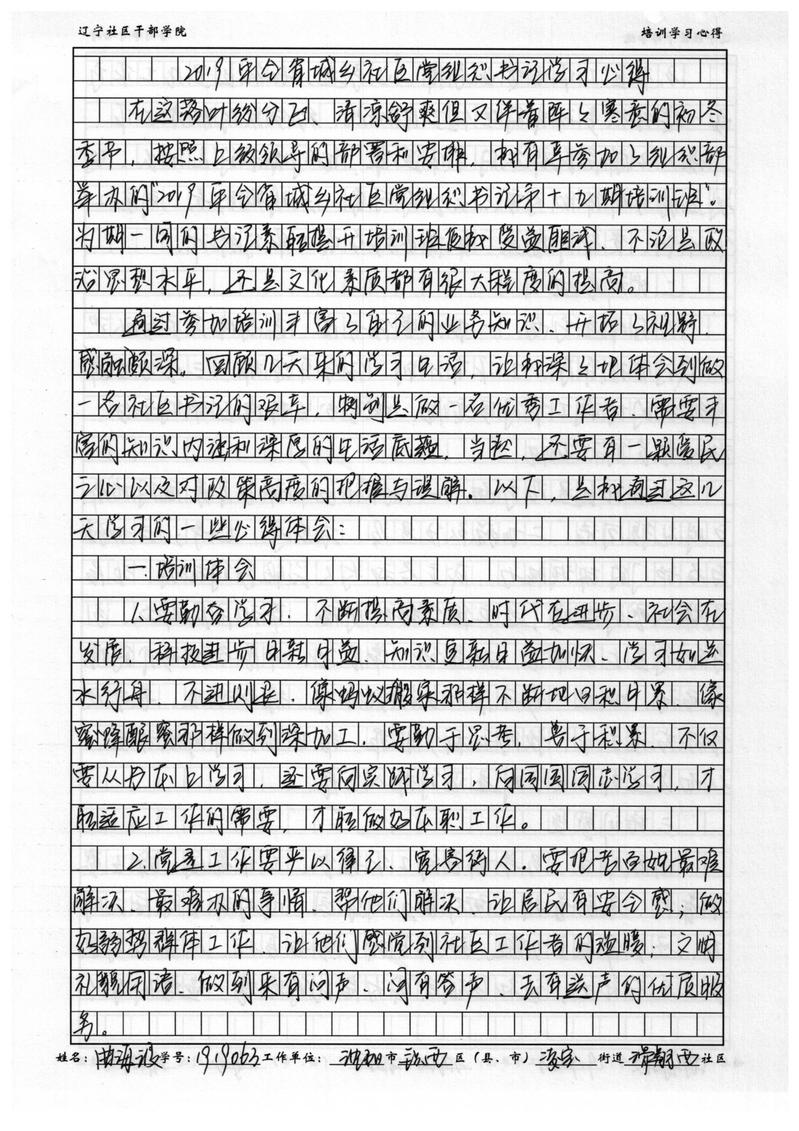 辽宁社区干部学院 培训学习心得
2019年全省城乡社区党组织书记学习心得
在这落叶纷分飞、清凉舒爽但又伴着阵阵寒意的初冬
季节，按照上级领导的部署和安排，我有幸参加了组织部
举办的"2019年全省城乡社区党组织书记第十九期培训班"。
为期一周的书记素能提升培训班使我受益匪浅，不论是政
治思想水平，还是文化素质都有很大程度的提高。
通过参加培训丰富了自己的业务知识、开拓了视野，
感触颇深。回顾几天来的学习生活，让我深深地体会到做
一名社区书记的艰辛，特别是做一名优秀工作者，需要丰
富的知识内涵和深厚的生活底蕴，当然，还要有一颗爱民
之心以及对政策高度的把握与理解。以下，是我通过这几
天学习的一些心得体会：
一.培训体会
1.要勤奋学习，不断提高素质，时代在进步、社会在
发展，科技进步日新月益，知识更新日益加快、学习如逆
水行舟，不进则退，像蚂蚁搬家那样不断地日积月累，像
蜜蜂酿蜜那样做到深加工，要勤于思考，善于积累，不仅
要从书本上学习，还要向实践学习，向周围同志学习，才
能适应工作的需要，才能做好本职工作。
2.党建工作要严以律己，宽容待人，要把老百姓最难
解决、最难办的事情，帮他们解决，让居民有安全感；做
好弱势群体工作，让他们感觉到社区工作者的温暖；文明
礼貌用语、做到来有问声、问有答声、去有送声的优质服
务。
姓名：曲海波 学号：1919063 工作单位：沈阳市 铁西 区（县、市）凌空 街道 社区